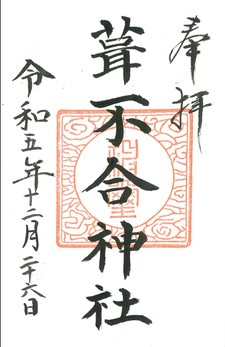 奉拝
葺不合神社
令和五年十二月二十六日